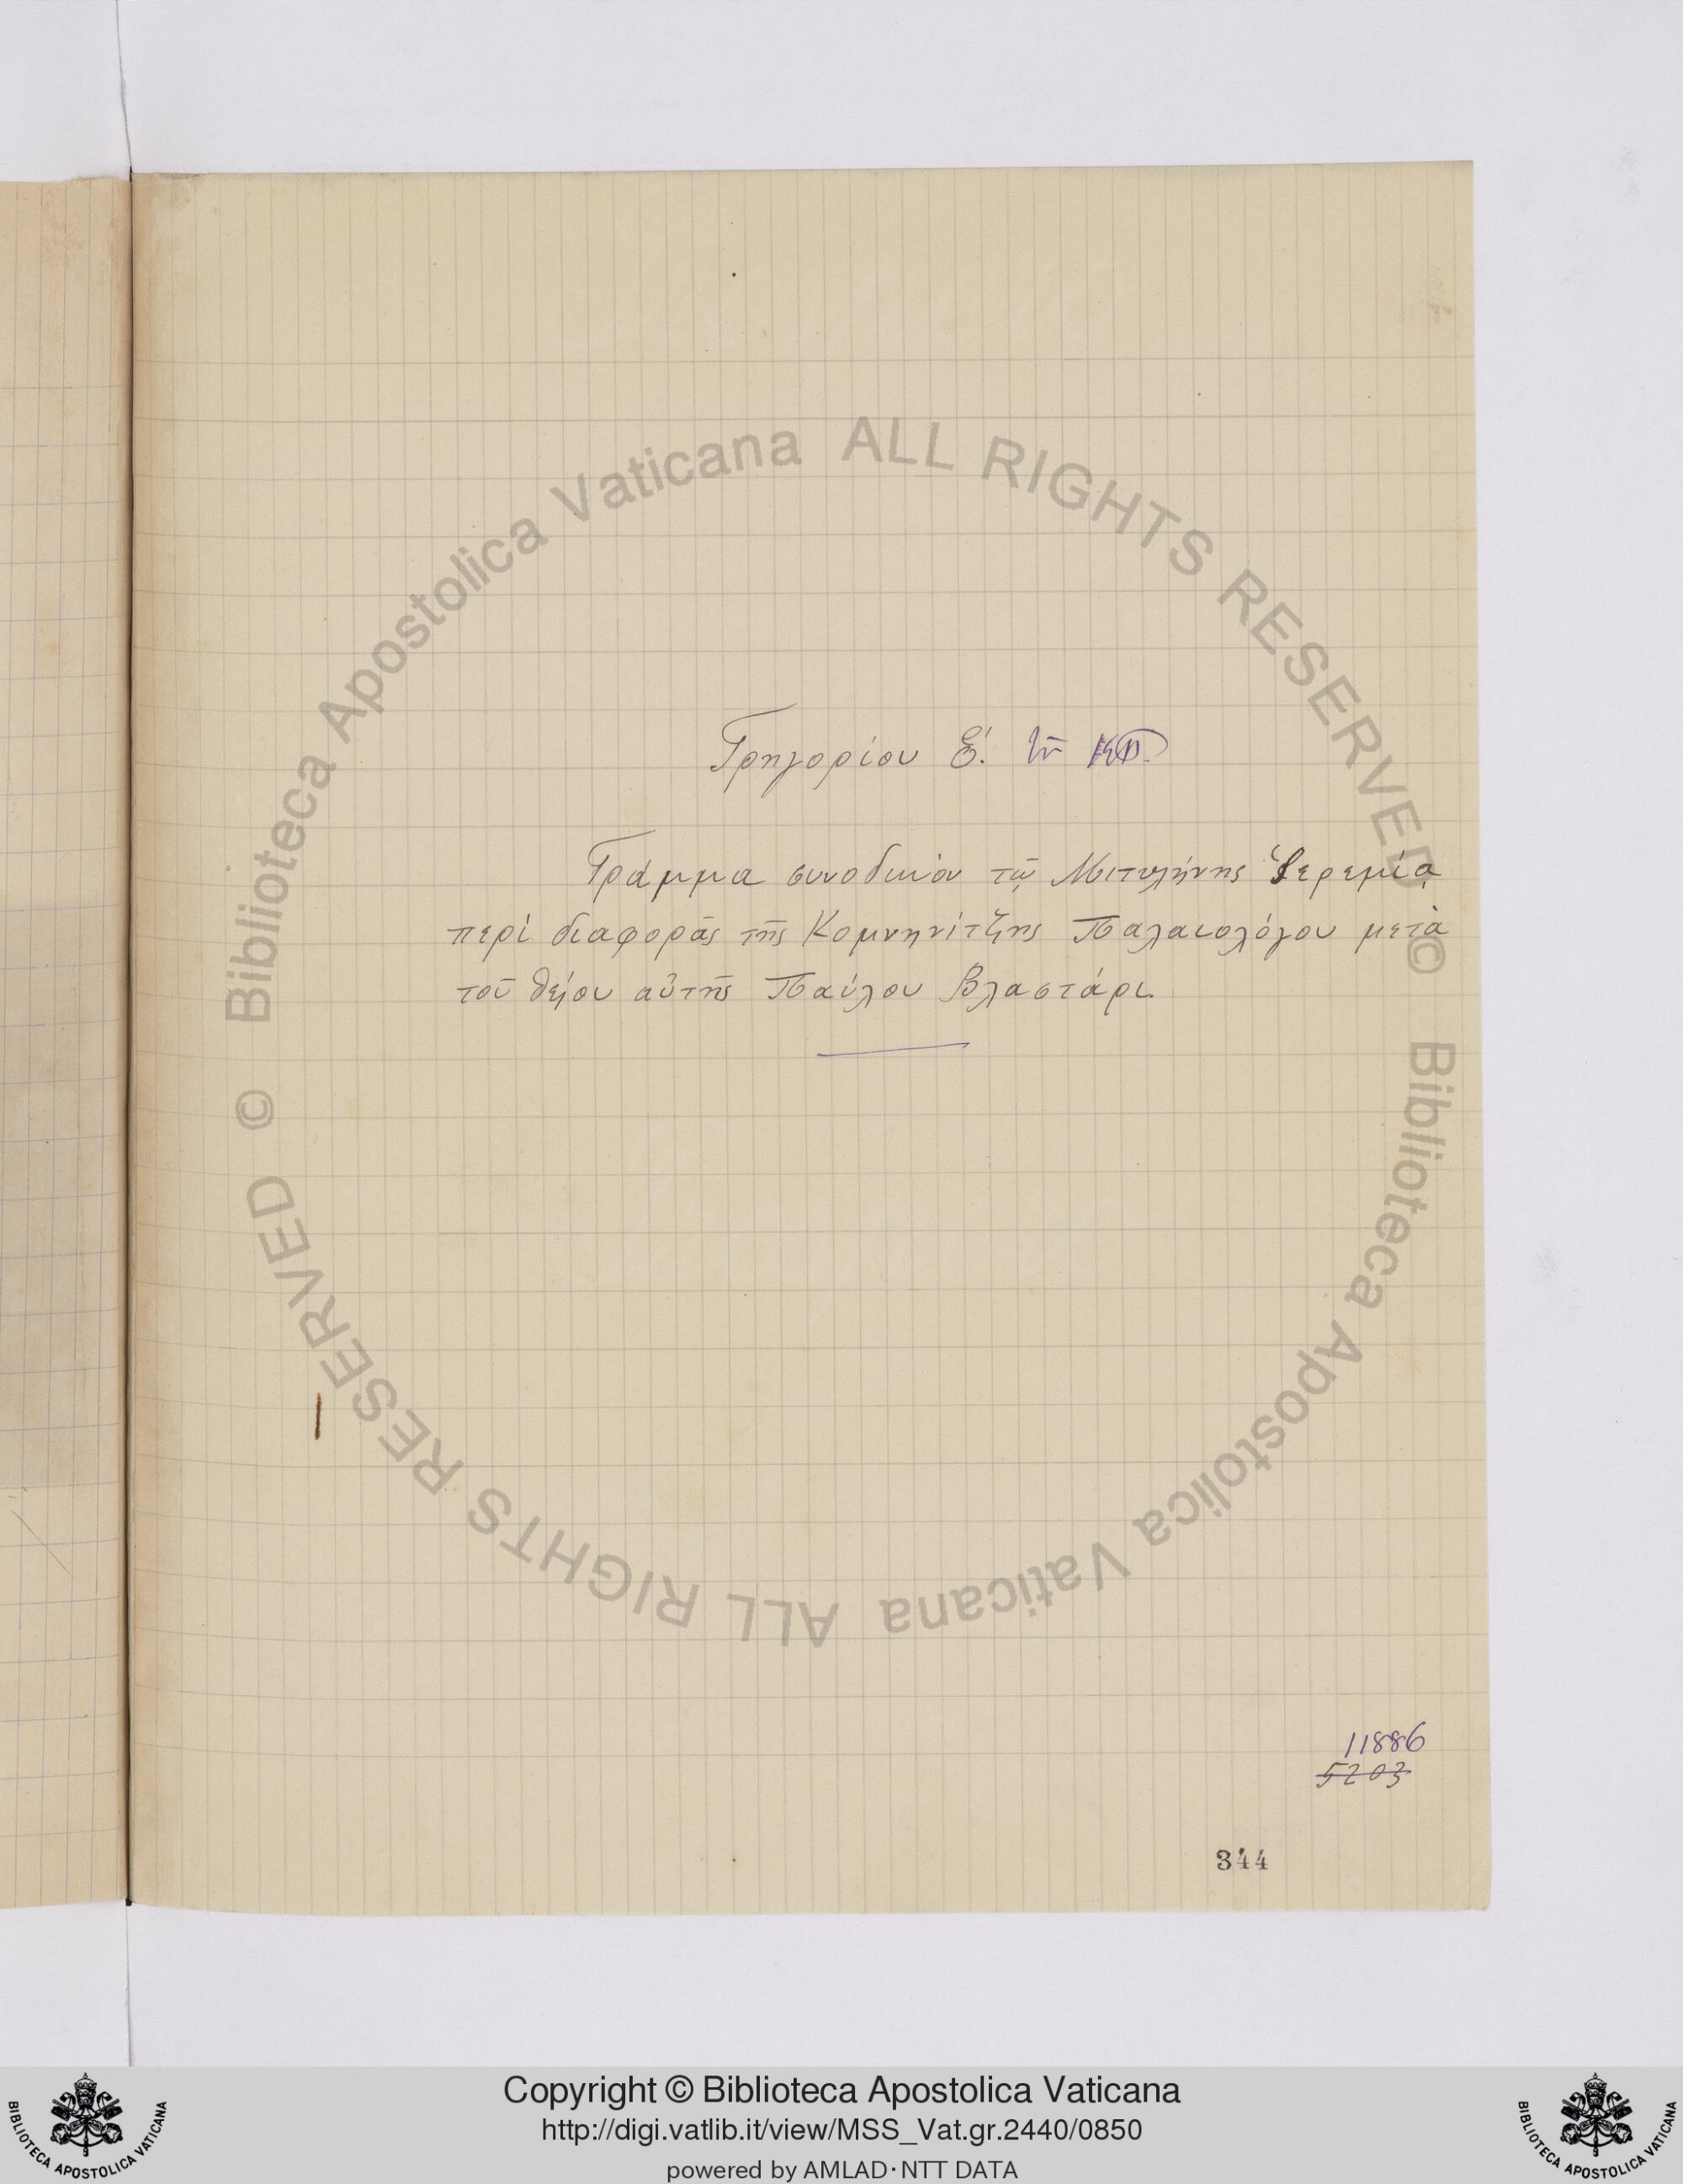 Γρηγορίου Ε΄.
Γράμμα συνοδικὸν τῷ Μιτυλήνης Ἱερεμίᾳ
περὶ διαφορᾶς τῆς Κομνηνίτζης Παλαιολόγου μετὰ
τοῦ θείου αὐτῆς Παύλου Βλαστάρι.
11886
5203
344
© Biblioteca Apostolica Vaticana ALL RIGHTS RESERVED
© Biblioteca Apostolica Vaticana ALL RIGHTS RESERVED
Copyright © Biblioteca Apostolica Vaticana
http://digi.vatlib.it/view/MSS_Vat.gr.2440/0850
powered by AMLAD·NTT DATA
BIBLIOTECA APOSTOLICA VATICANA
BIBLIOTECA APOSTOLICA VATICANA